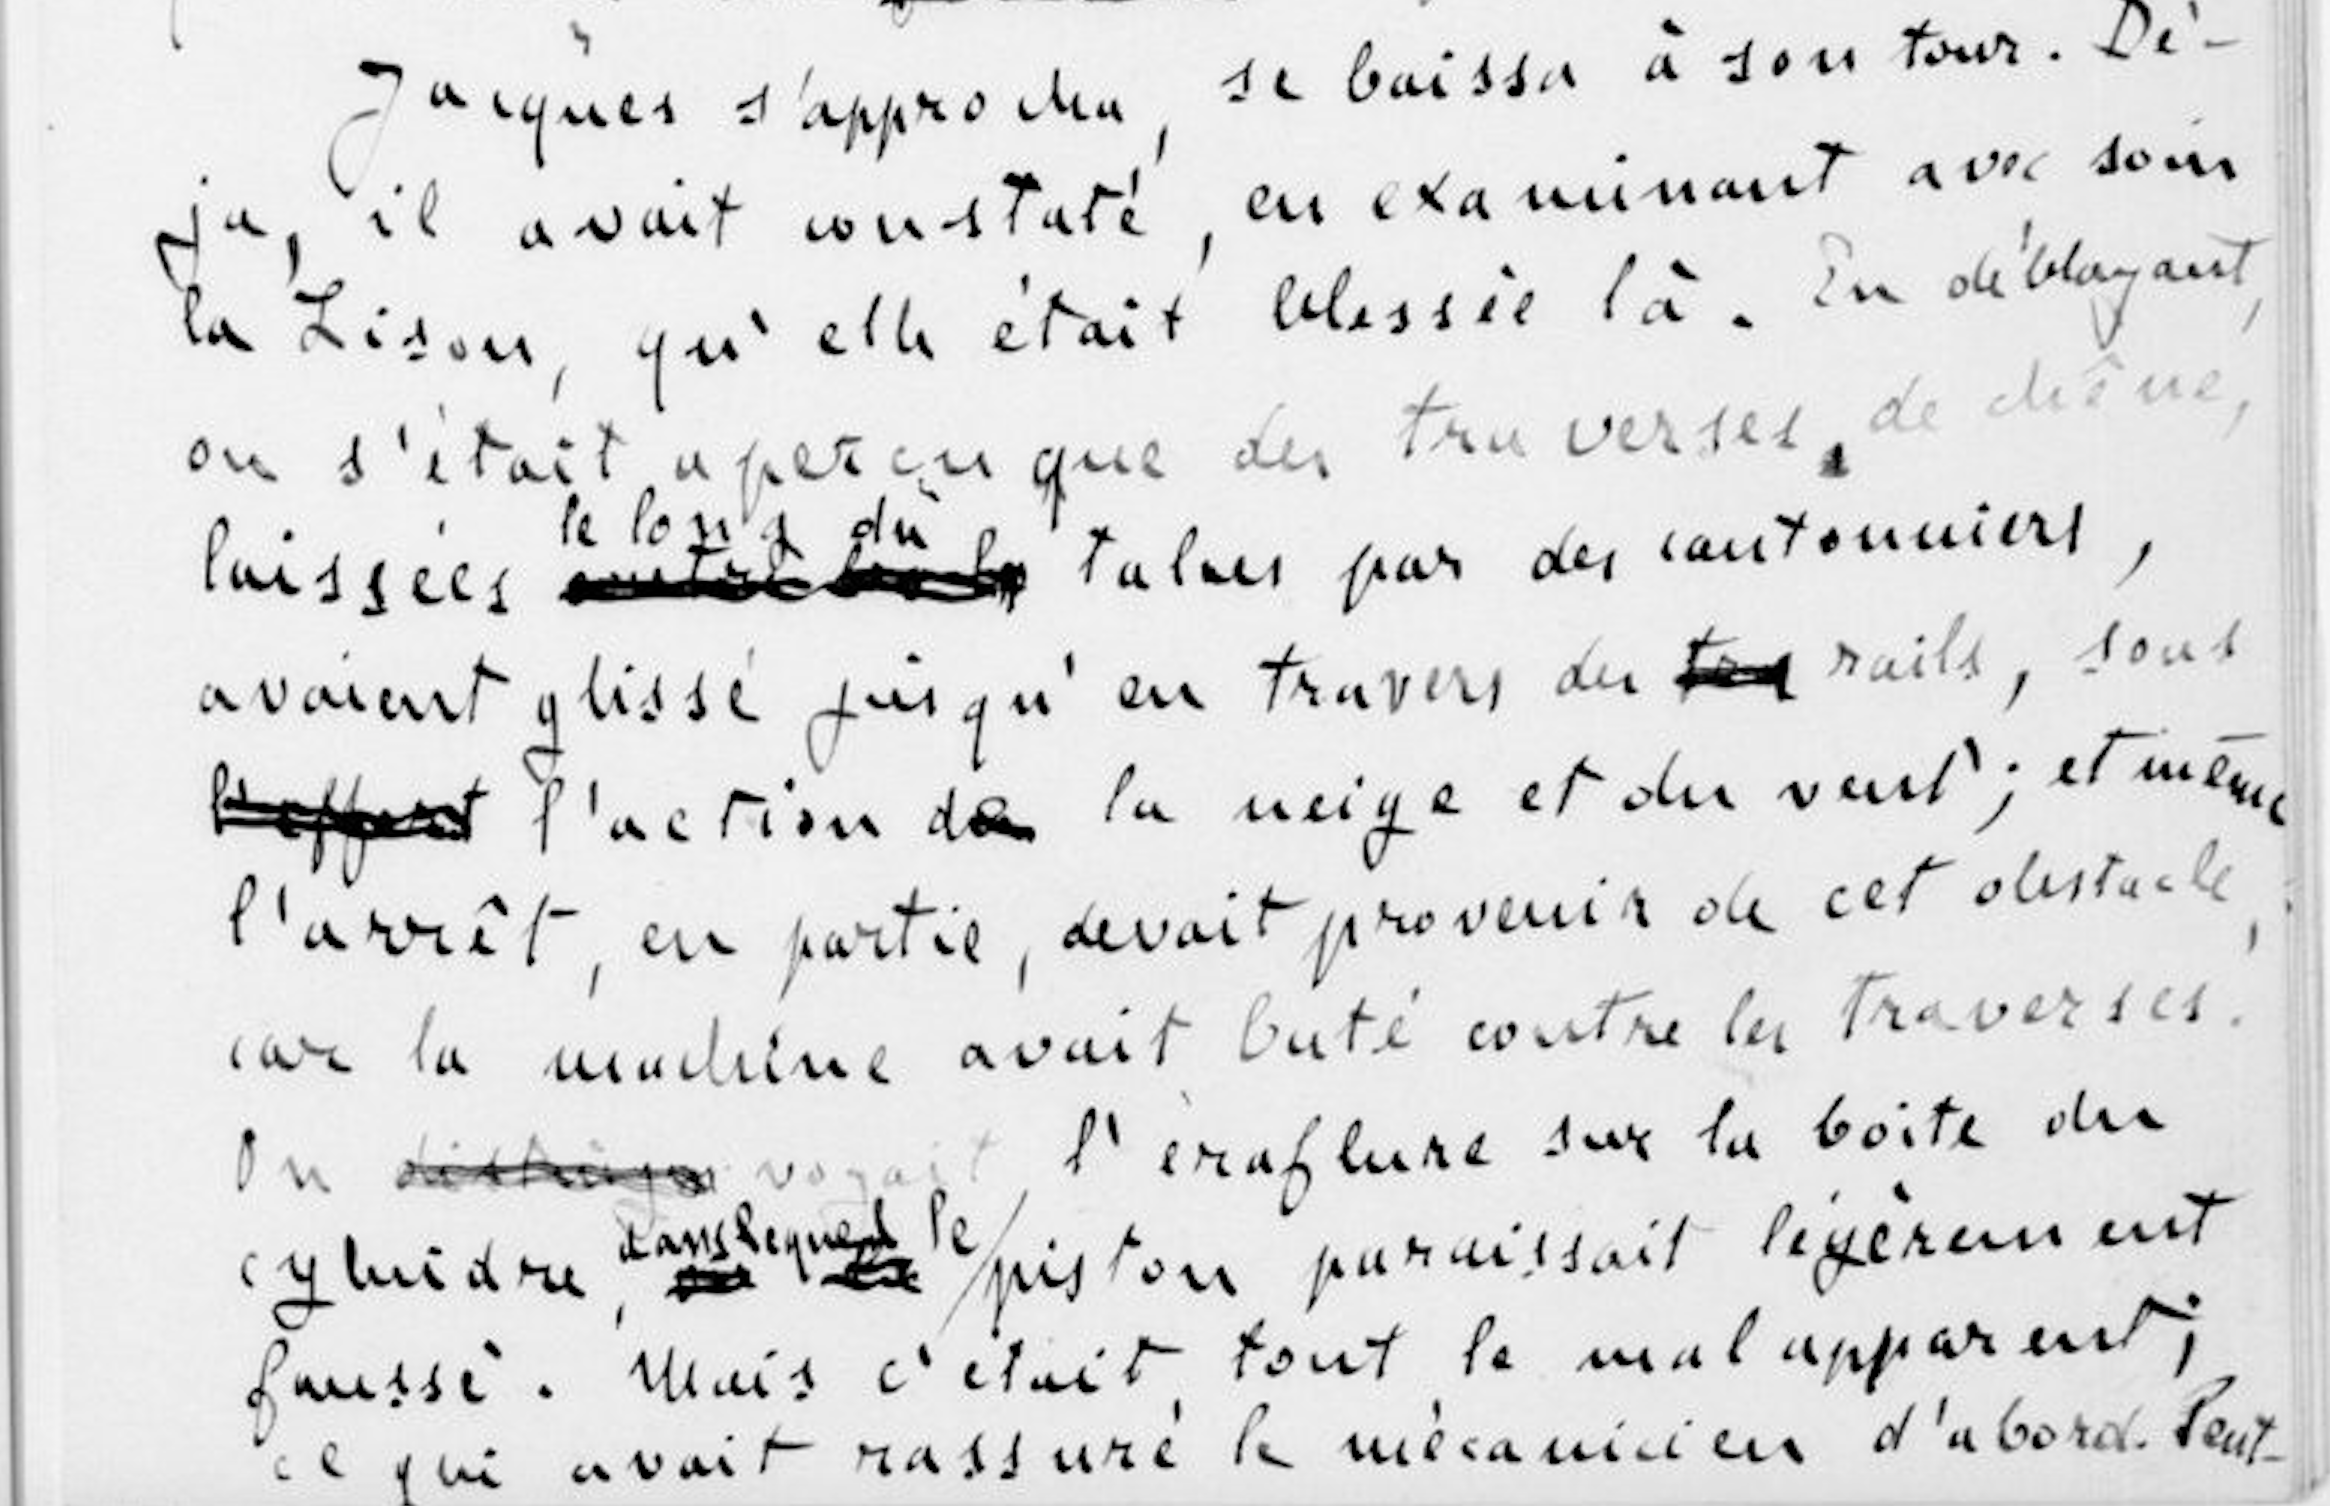 Jacques s'approcha, se baissa à son tour. Dé-
jà, il avait constaté, en examinant avec soin
la Lison, qu'elle était blessée là. En déblayant,
on s'était aperçu que des traverses de chêne,
le long du
laissées talus par des cantonniers,
avaient glissé jusqu'en travers des rails, sous
l'effort l'action de la neige et du vent ; et même
l'arrêt, en partie, devait provenir de cet obstacle,
car la machine avait buté contre les traverses.
On voyait l'éraflure sur la boîte du
dans lequel le
cylindre, piston paraissait légèrement
faussé. Mais c'était tout le mal apparent ;
ce qui avait rassuré le mécanicien d'abord. Peut-